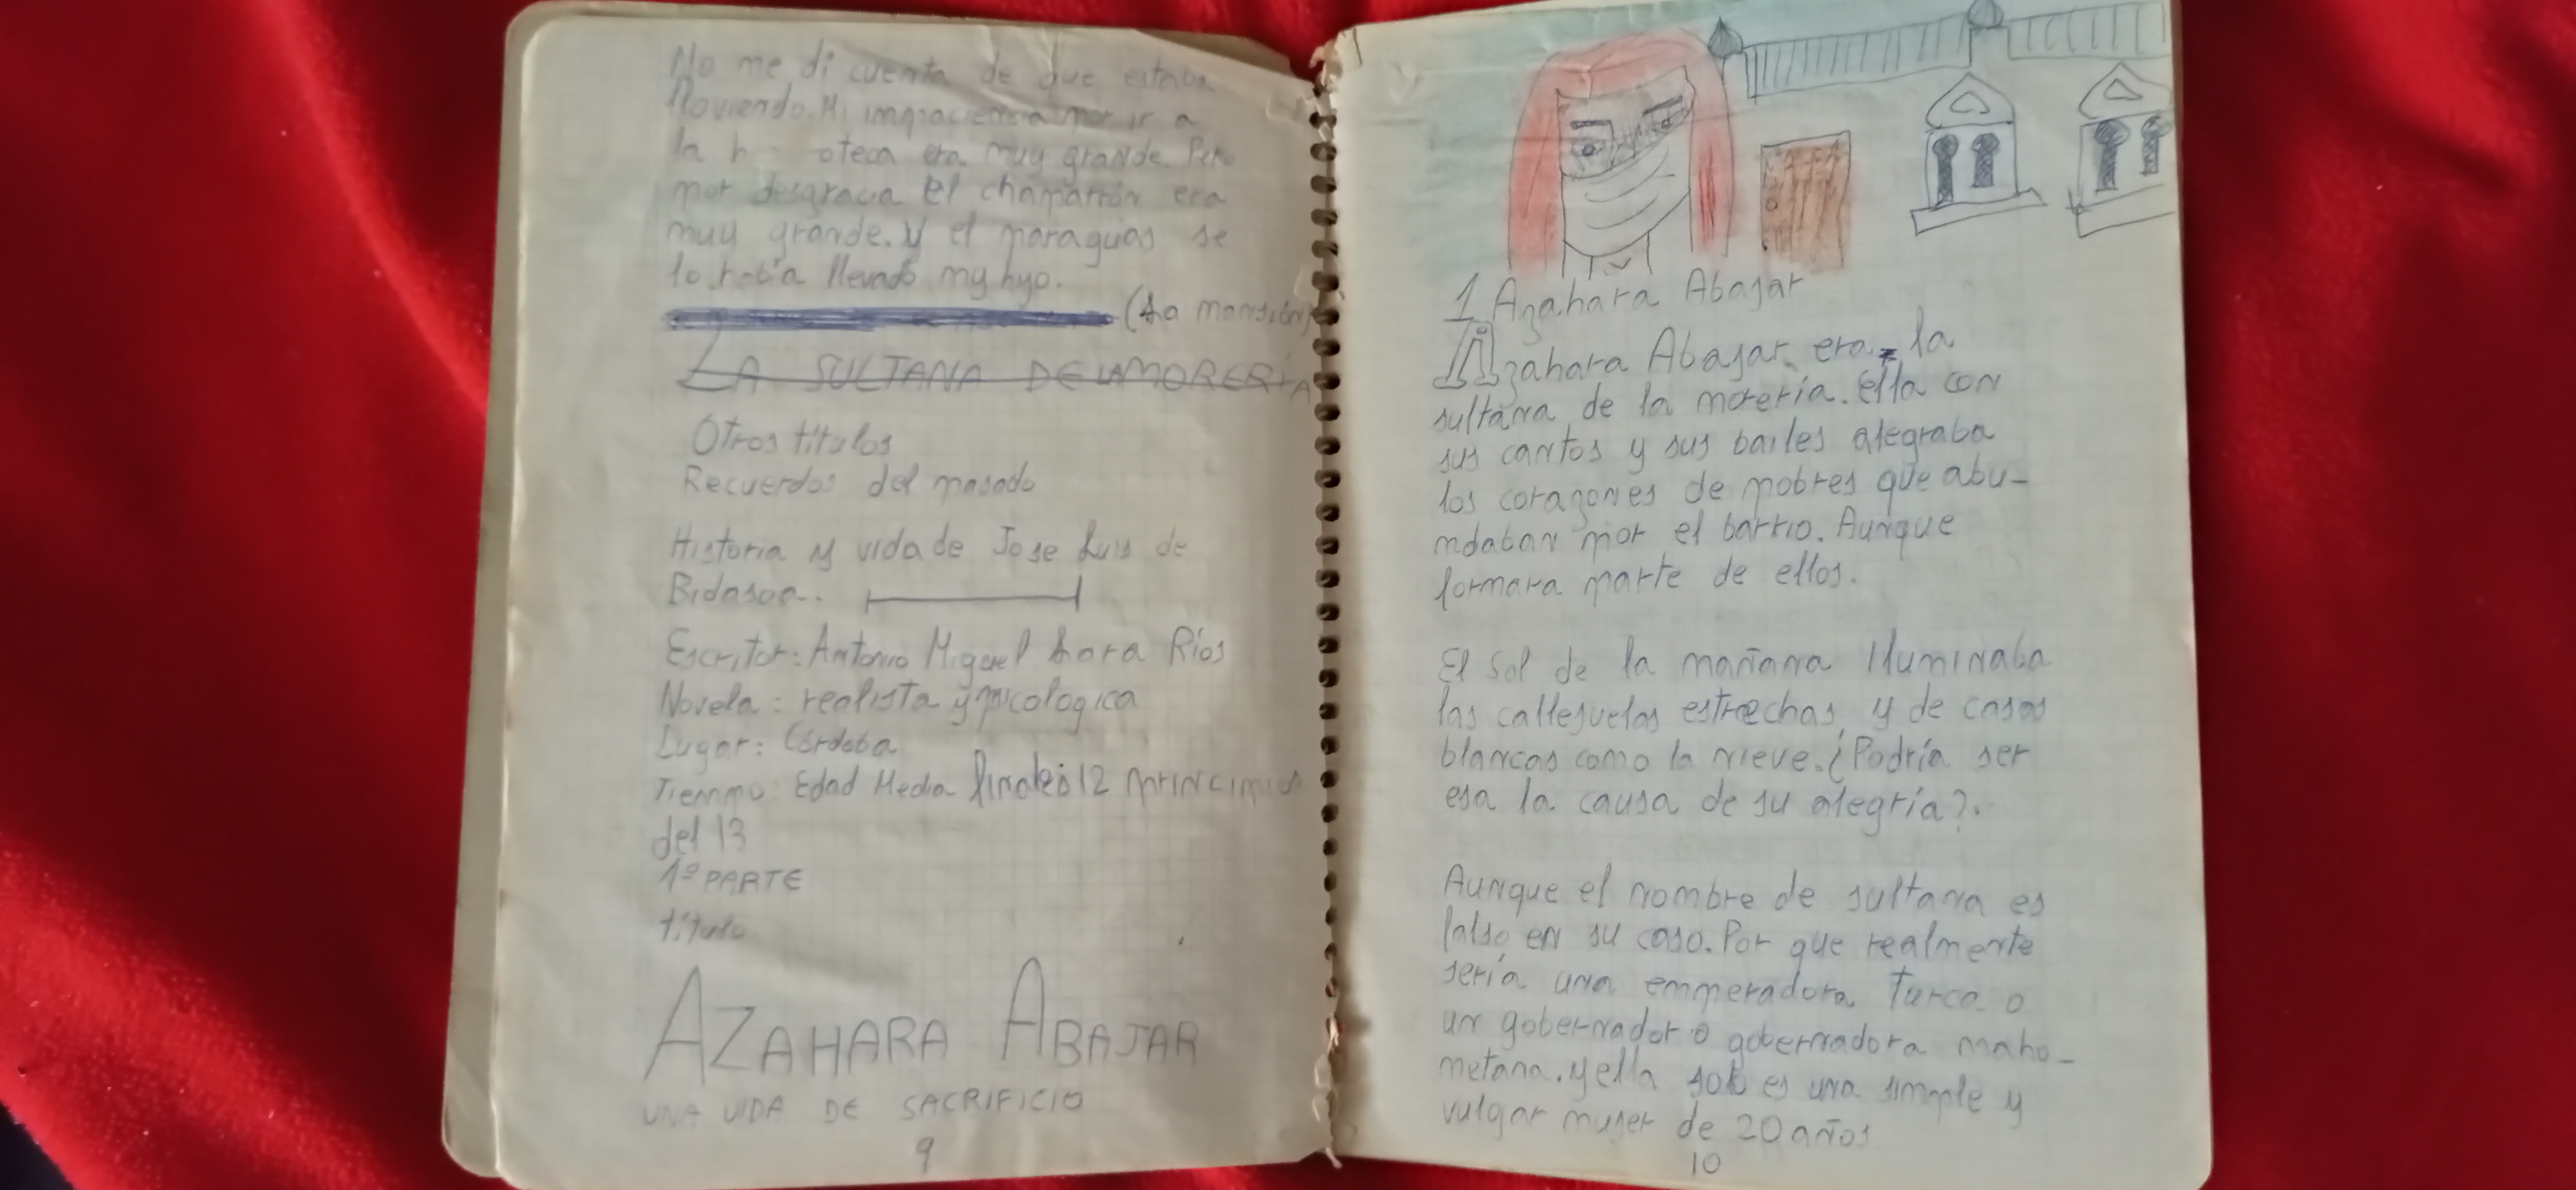 No me di cuenta de que estaba
lloviendo. Mi impaciencia por ir a
la h oteca era muy grande. Pero
por desgracia el chaparrón era
muy grande. Y el paraguas se
lo había llevado my hyo.
(La mansión)
LA SULTANA DE LA MORERÍA
Otros títulos
Recuerdos del pasado
Historia y vida de Jose Luis de
Bidasoa.
Escritor: Antonio Miguel Lara Ríos
Novela: realista y psicologica
Lugar: Córdoba
Tiempo: Edad Media finales 12 principios
del 13
1ª PARTE
título
AZAHARA ABAJAR
UNA VIDA DE SACRIFICIO
9
1 Azahara Abajar
Azahara Abajar era la
sultana de la morería. Ella con
sus cantos y sus bailes alegraba
los corazones de pobres que abu-
ndaban por el barrio. Aunque
formara parte de ellos.
El sol de la mañana iluminaba
las callejuelas estrechas, y de casas
blancas como la nieve. ¿Podría ser
esa la causa de su alegría?.
Aunque el nombre de sultana es
falso en su caso. Por que realmente
sería una emperadora turca o
un gobernador o gobernadora maho-
metana. y ella solo es una simple y
vulgar mujer de 20 años
10